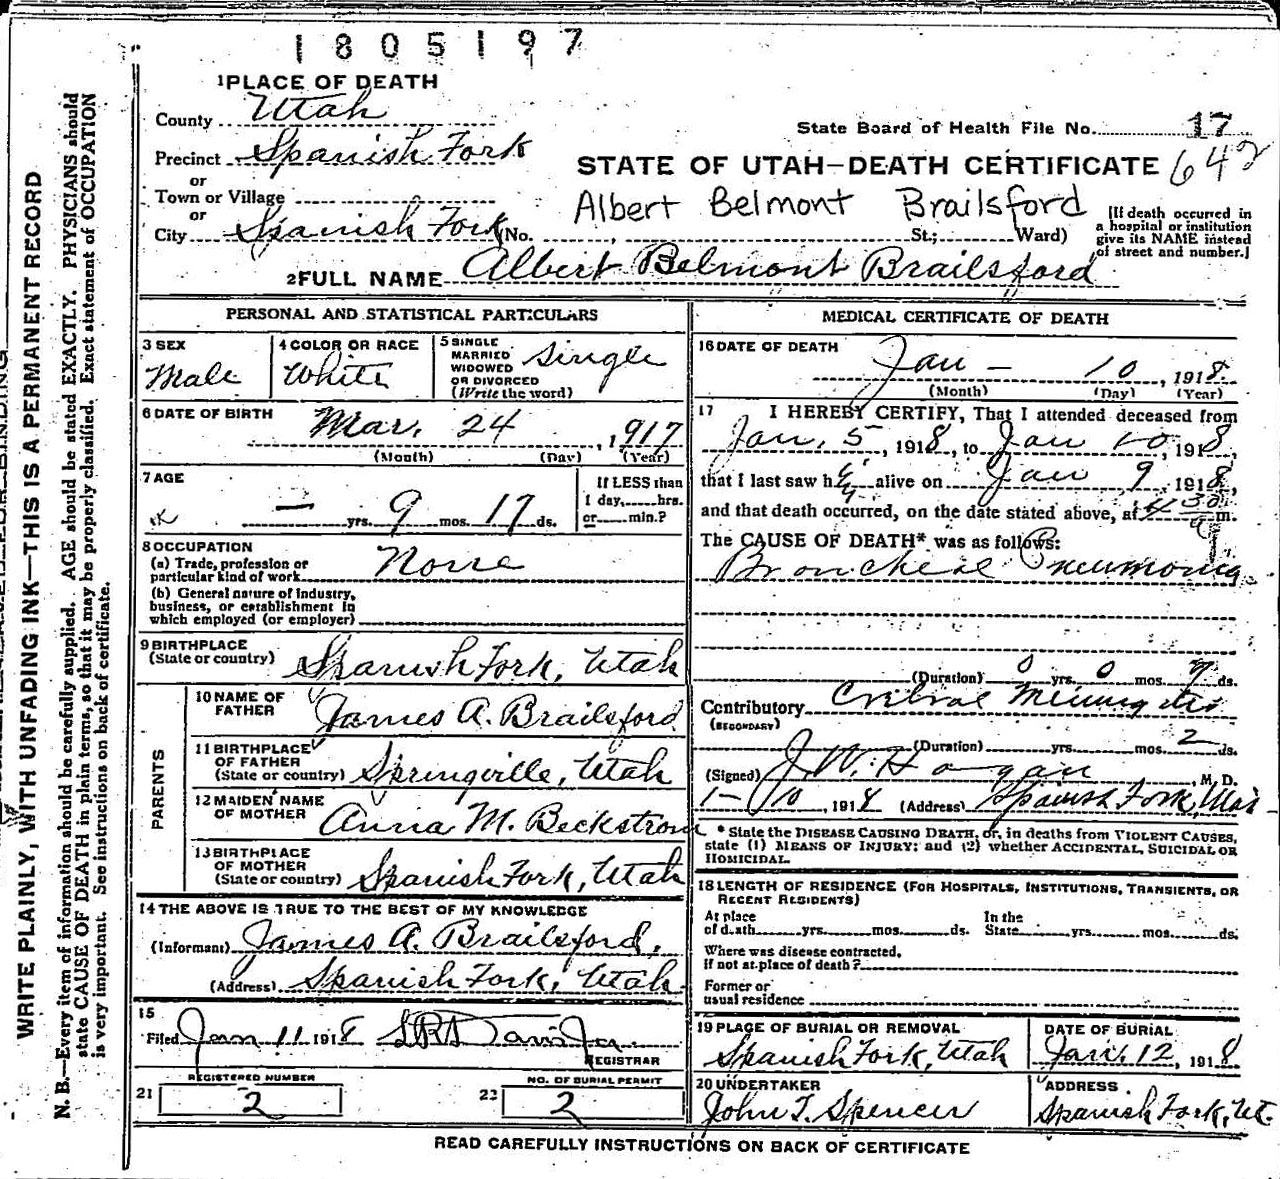 1805197
1 PLACE OF DEATH
County Utah
State Board of Health File No. 17
Precinct Spanish Fork
STATE OF UTAH—DEATH CERTIFICATE 642
or
Town or Village
Albert Belmont Brailsford
or
City Spanish Fork (No. , St.; Ward)
[If death occurred in
a hospital or institution
give its NAME instead
of street and number.]
2 FULL NAME Albert Belmont Brailsford
PERSONAL AND STATISTICAL PARTICULARS
3 SEX
Male
4 COLOR OR RACE
White
5 SINGLE
MARRIED
WIDOWED
OR DIVORCED
(Write the word)
Single
6 DATE OF BIRTH
Mar. 24, 1917
(Month) (Day) (Year)
7 AGE
— yrs. 9 mos. 17 ds.
If LESS than
1 day, hrs.
or min.?
8 OCCUPATION
(a) Trade, profession or
particular kind of work None
(b) General nature of industry,
business, or establishment in
which employed (or employer)
9 BIRTHPLACE
(State or country) Spanish Fork, Utah
PARENTS
10 NAME OF
FATHER James A. Brailsford
11 BIRTHPLACE
OF FATHER
(State or country) Springville, Utah
12 MAIDEN NAME
OF MOTHER Anna M. Beckstrom
13 BIRTHPLACE
OF MOTHER
(State or country) Spanish Fork, Utah
14 THE ABOVE IS TRUE TO THE BEST OF MY KNOWLEDGE
(Informant) James A. Brailsford,
(Address) Spanish Fork, Utah
15
Filed Jan 11 1918
REGISTRAR
REGISTERED NUMBER
21 2
NO. OF BURIAL PERMIT
22 2
MEDICAL CERTIFICATE OF DEATH
16 DATE OF DEATH
Jan — 10, 1918.
(Month) (Day) (Year)
17 I HEREBY CERTIFY, That I attended deceased from
Jan. 5, 1918, to Jan 10, 1918,
that I last saw h alive on Jan 9 1918,
and that death occurred, on the date stated above, at 4 30 m.
The CAUSE OF DEATH* was as follows:
Bronchial Pneumonia
(Duration) 0 yrs. 0 mos. 9 ds.
Contributory Cerebral Meningitis
(SECONDARY)
(Duration) yrs. mos. 2 ds.
(Signed) J. W. Hagan, M. D.
1-10, 1918 (Address) Spanish Fork, Utah
* State the DISEASE CAUSING DEATH, or, in deaths from VIOLENT CAUSES,
state (1) MEANS OF INJURY; and (2) whether ACCIDENTAL, SUICIDAL OR
HOMICIDAL.
18 LENGTH OF RESIDENCE (FOR HOSPITALS, INSTITUTIONS, TRANSIENTS, OR
RECENT RESIDENTS)
At place
of death yrs. mos. ds.
In the
State yrs. mos. ds.
Where was disease contracted,
if not at place of death?
Former or
usual residence
19 PLACE OF BURIAL OR REMOVAL
Spanish Fork, Utah
DATE OF BURIAL
Jan. 12, 1918
20 UNDERTAKER
John T. Spencer
ADDRESS
Spanish Fork, Ut.
READ CAREFULLY INSTRUCTIONS ON BACK OF CERTIFICATE
WRITE PLAINLY, WITH UNFADING INK—THIS IS A PERMANENT RECORD
N. B.—Every item of information should be carefully supplied. AGE should be stated EXACTLY. PHYSICIANS should
state CAUSE OF DEATH in plain terms, so that it may be properly classified. Exact statement of OCCUPATION
is very important. See instructions on back of certificate.